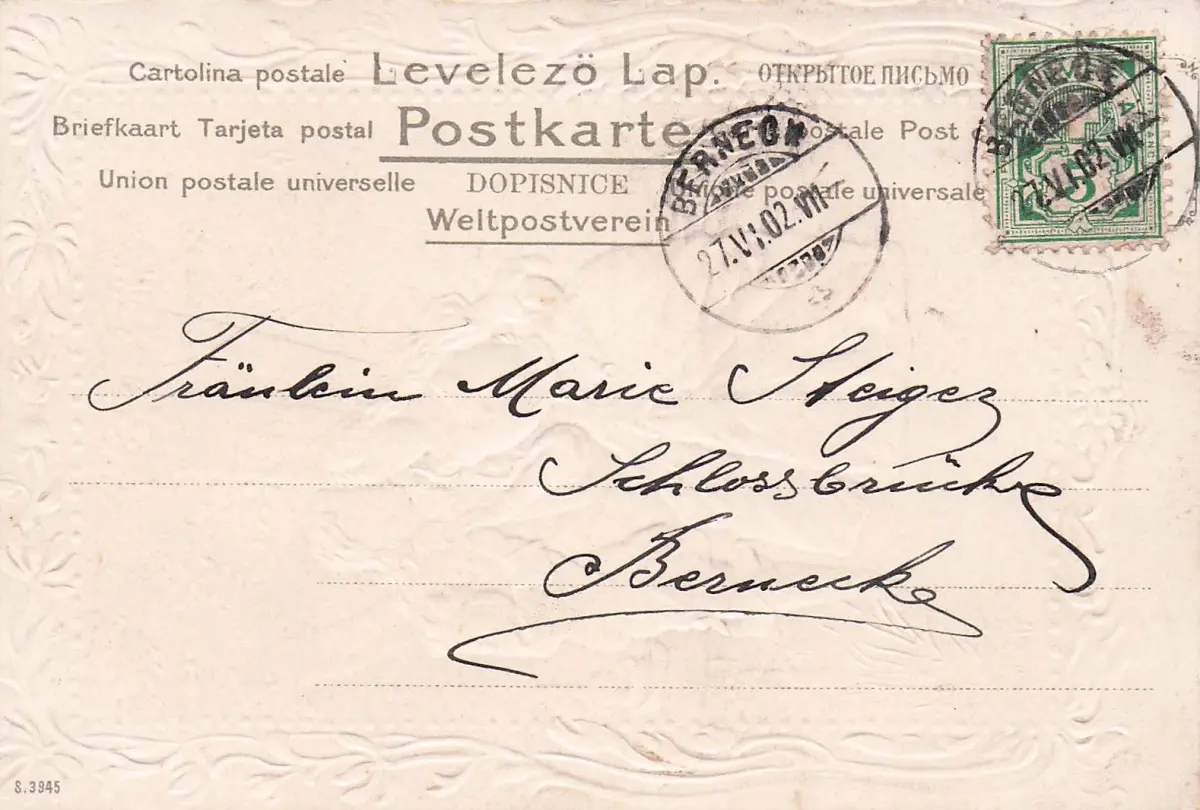 Cartolina postale Levelezö Lap. ОТКРЫТОЕ ПИСЬМО
Briefkaart Tarjeta postal Postkarte postale Post
Union postale universelle DOPISNICE postale universale
Weltpostverein
BERNECK
27.VI.02.VII
BERNECK
27.VI.02.VII
5
Fräulein Marie Steiger
Schlossbrücke
Berneck
S.3945